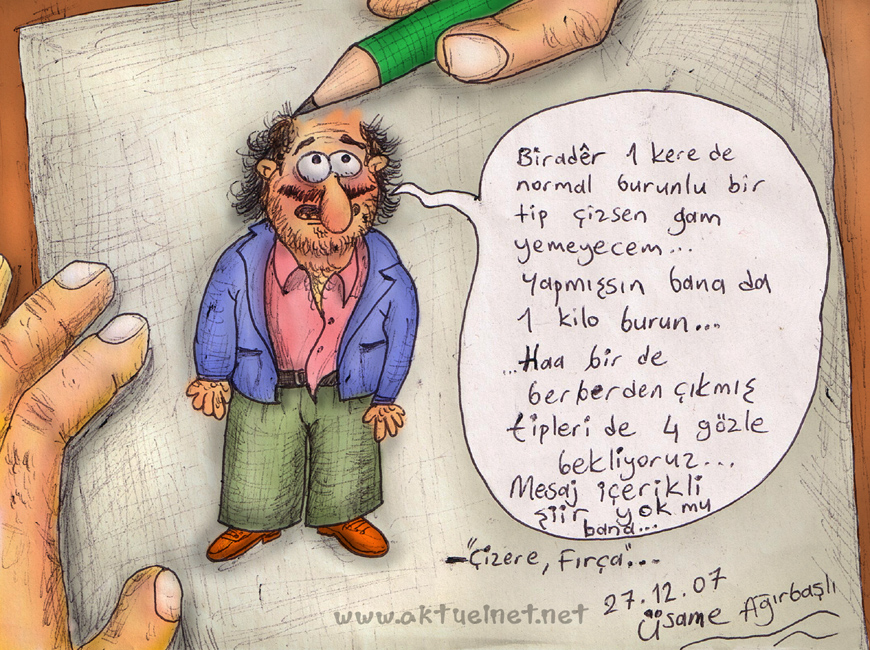 Biradêr 1 kere de
normal burunlu bir
tip çizsen gam
yemeyecem...
Yapmışsın bana da
1 kilo burun...
...Haa bir de
berberden çıkmış
tipleri de 4 gözle
bekliyoruz...
Mesaj içerikli
şiir yok mu
bana...
-"Çizere, Fırça"...
27.12.07
Üsame Ağırbaşlı
www.aktuelnet.net